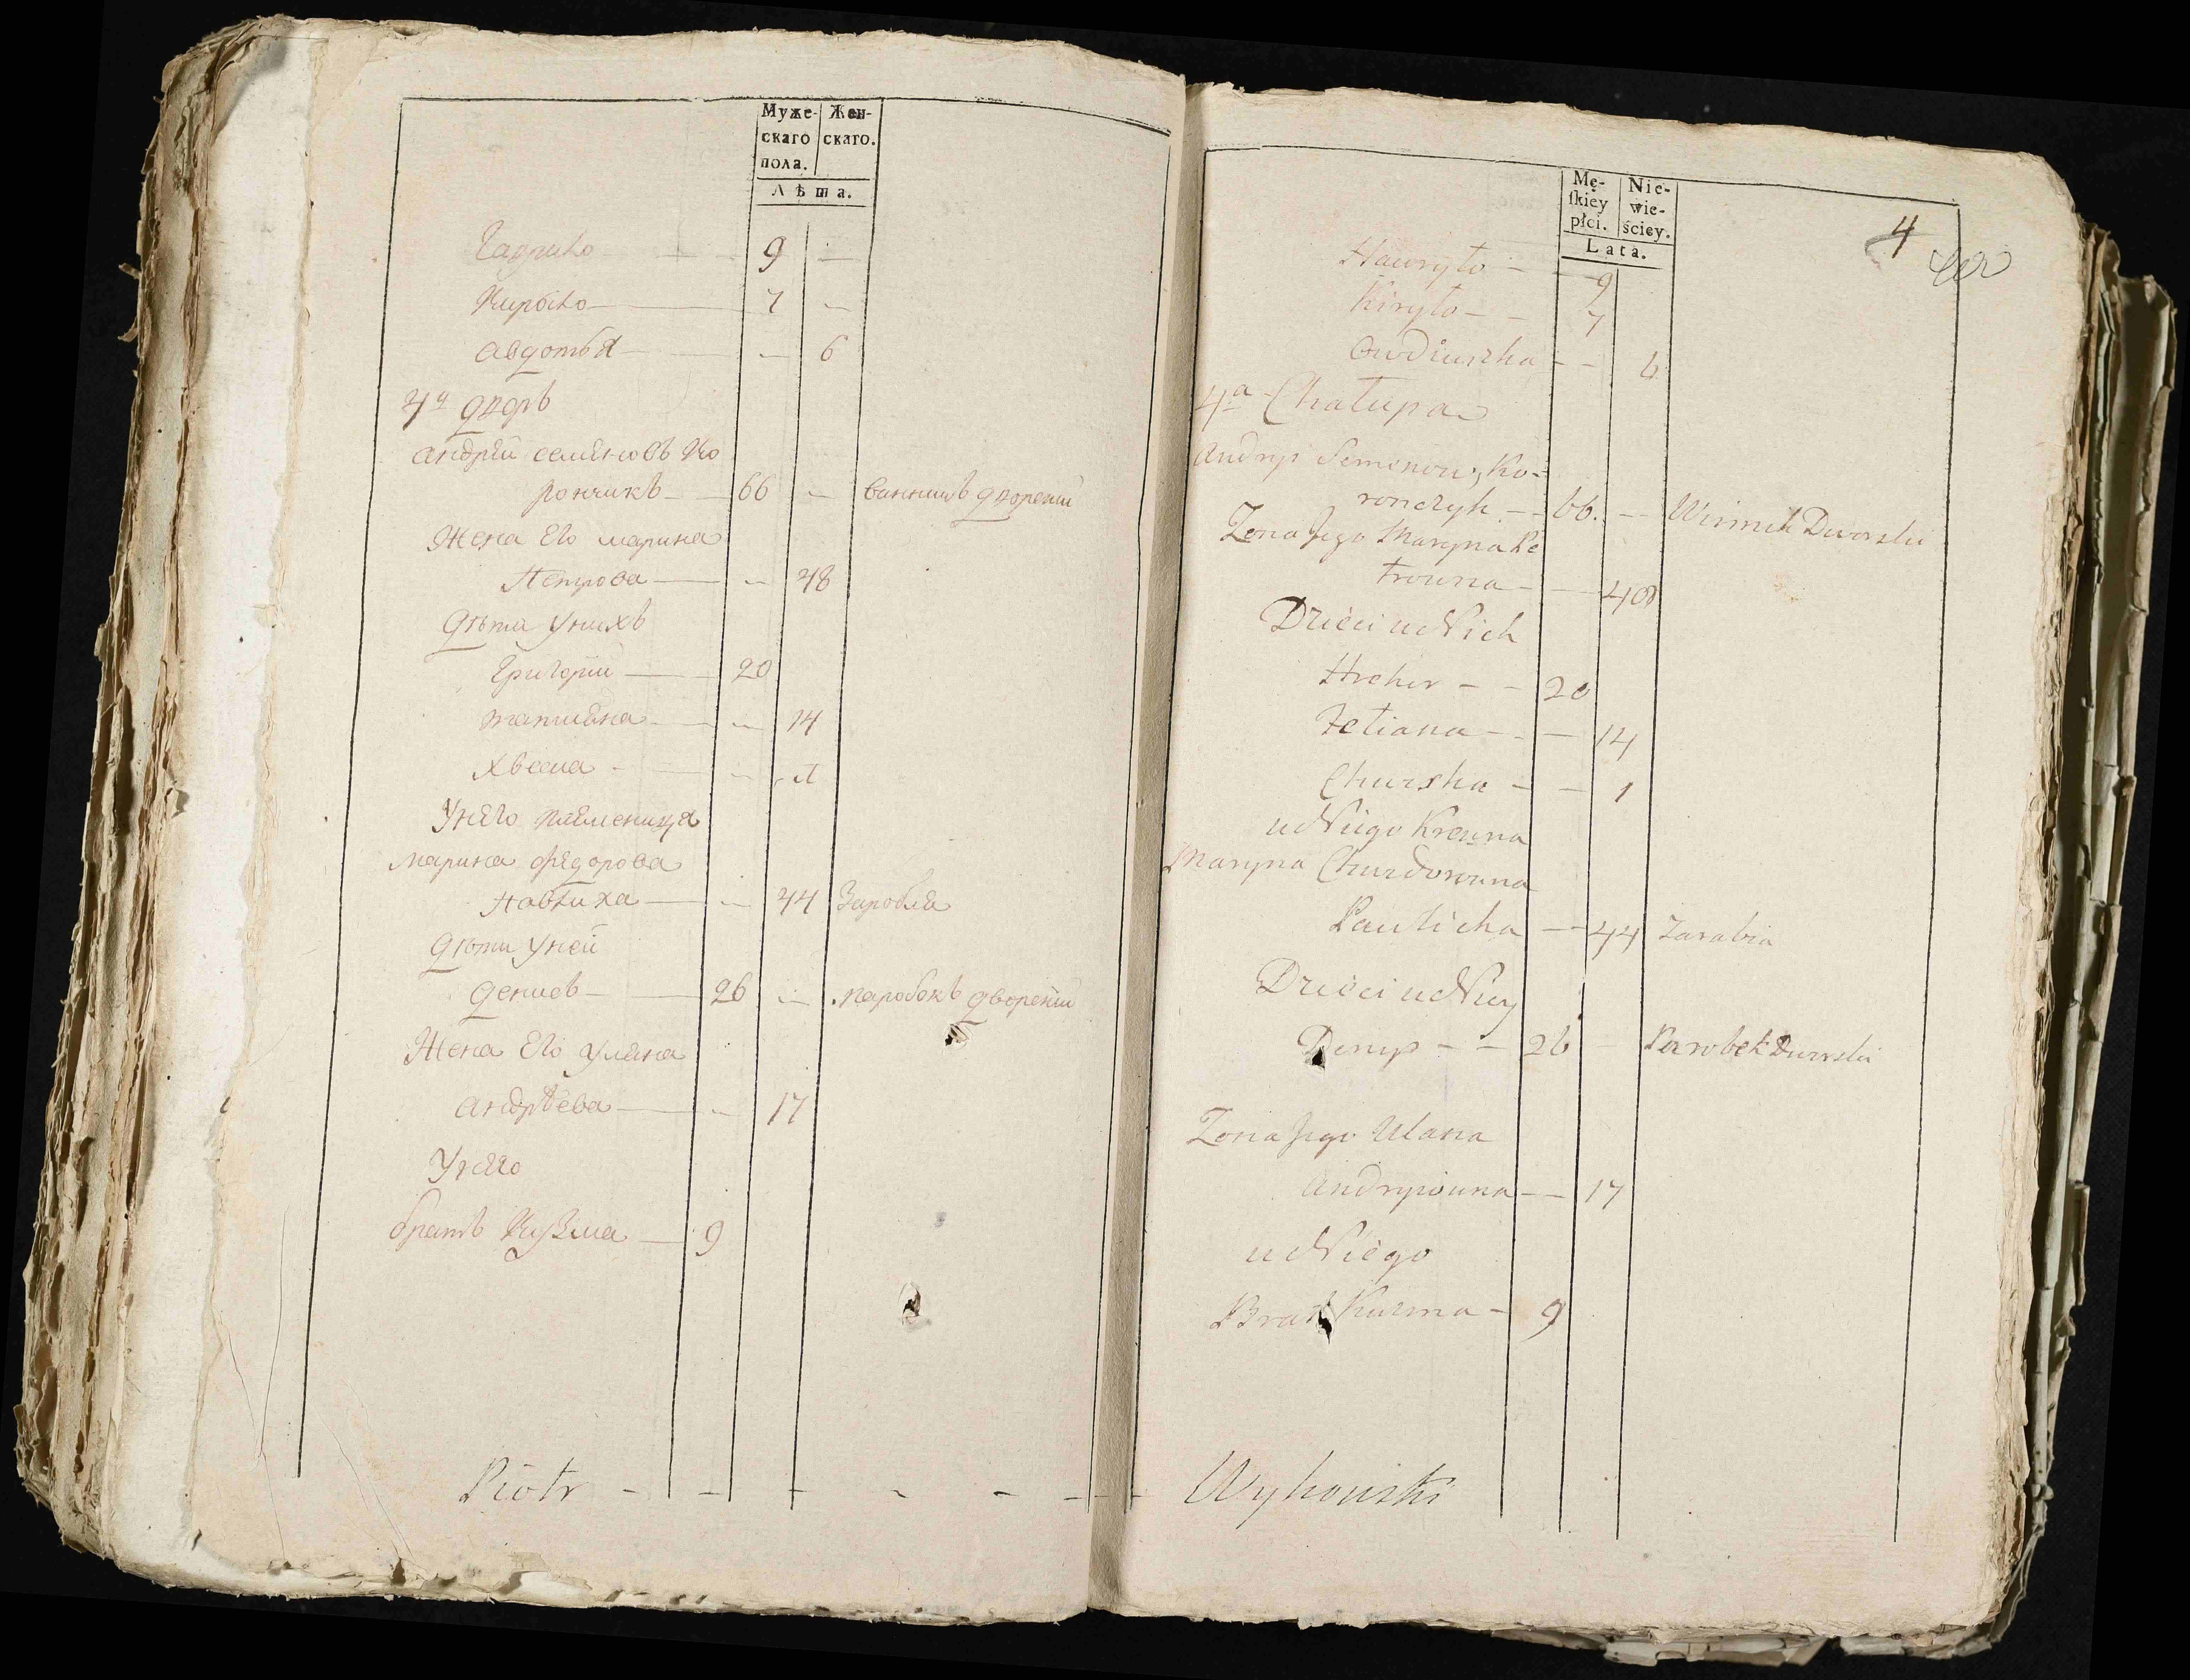 Муже- Жен-
скаго скаго.
пола.
Лѣта.
Гаврило — 9 —
Кирило — 7 —
Авдотья — — 6
4й дворъ
Андрѣй Семяновъ Ко
рончикъ — 66 — винникъ дворскій
Жена Его Марина
Петрова — — 48
Дѣти унихъ
Григорій — 20
татиана — — 14
Хвеска — — 1
Унего племеница
Марина Федорова
Павлиха — — 44 Заробля
Дѣти уней
Денисъ — 26 — паробокъ дворскій
Жена Его Уляна
Андрѣева — — 17
Унего
братъ Кузма — 9
Piotr - - - - - -
Mę- Nie-
ſkiey wie-
płci. ściey.
Lata.
4
Hawryło - - 9
Kiryło - - 7
Owdiuszka - - 6
4a Chałupa
Andryi Semenow, Ko=
ronczyk - - 66. - Winnik Dworski
Zona Jego Maryna Pe
trowna - - 48
Dzieci u Nich
Hrehor - - 20
Tetiana - - - 14
Chweska - - 1
u Niego Krewna
Maryna Chwedorowna
Pawlicha - - 44 Zarabia
Dzieci u Niey
Denys - - 26 - Parobek Dworski
Zona Jego Ulana
Andryiowna - - 17
u Niego
Brat Kuzma - 9
Wyhowski